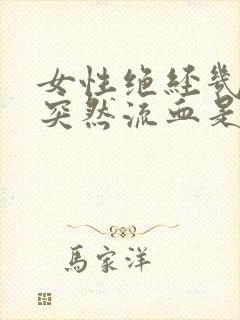 女性绝经
突然流血是
馬家洋